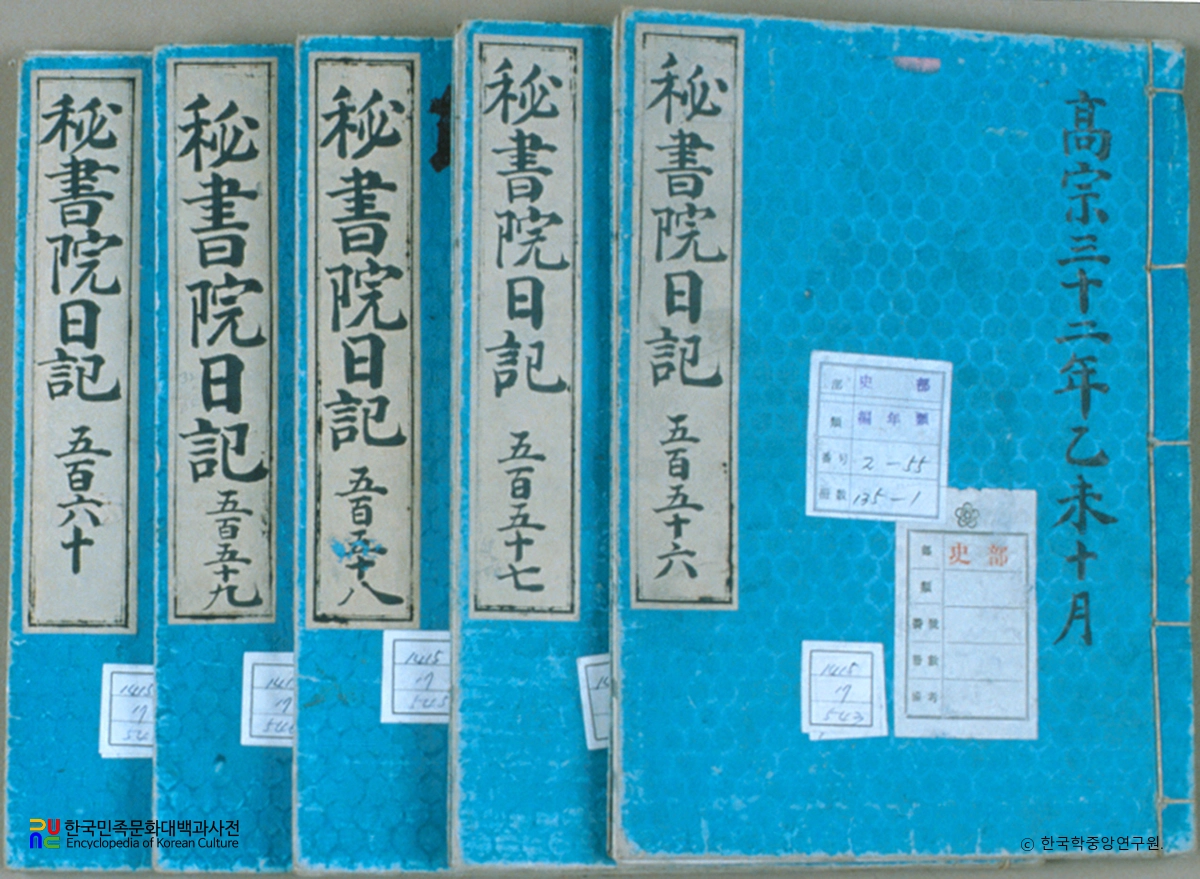 高宗三十二年乙未十月
秘書院日記 五百五十六
部 史 部
類 編 年 類
番号 2-55
冊数 135-1
部 史 部
類
番 號
冊 數
備 考
1415
17
543
秘書院日記 五百五十七
秘書院日記 五百五十八
1415
17
545
秘書院日記 五百五十九
秘書院日記 五百六十
1415
17
한국민족문화대백과사전
Encyclopedia of Korean Culture
© 한국학중앙연구원.